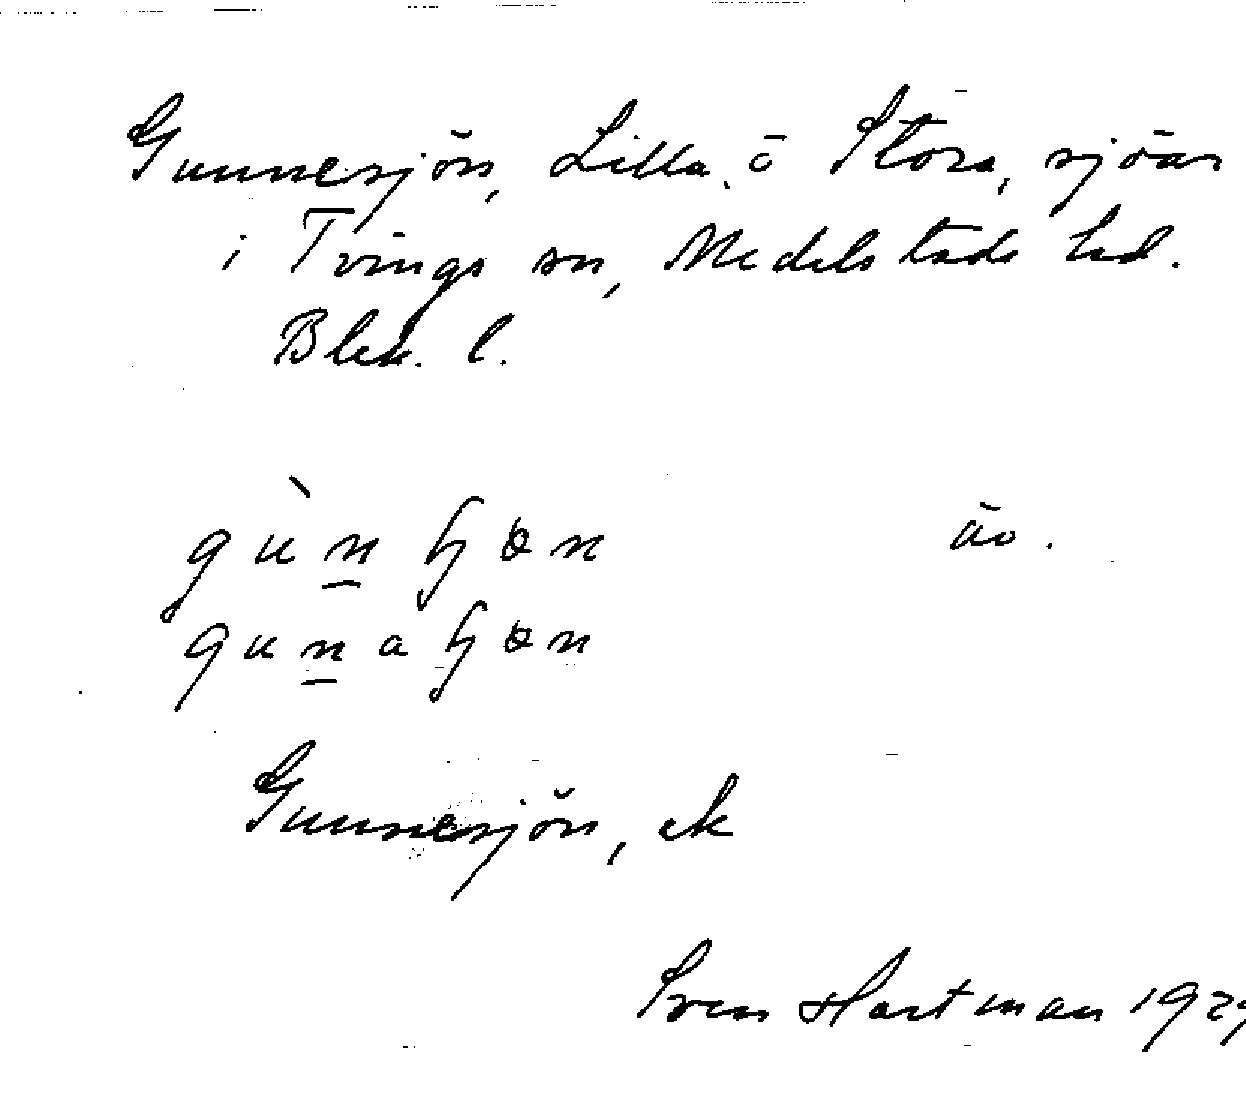 Gunnesjön, Lilla, o Stora, sjöar
i Tvings sn, Medelstads hd.
Blek. l.
äo.
Gunnesjön, ek
Sven Hartman